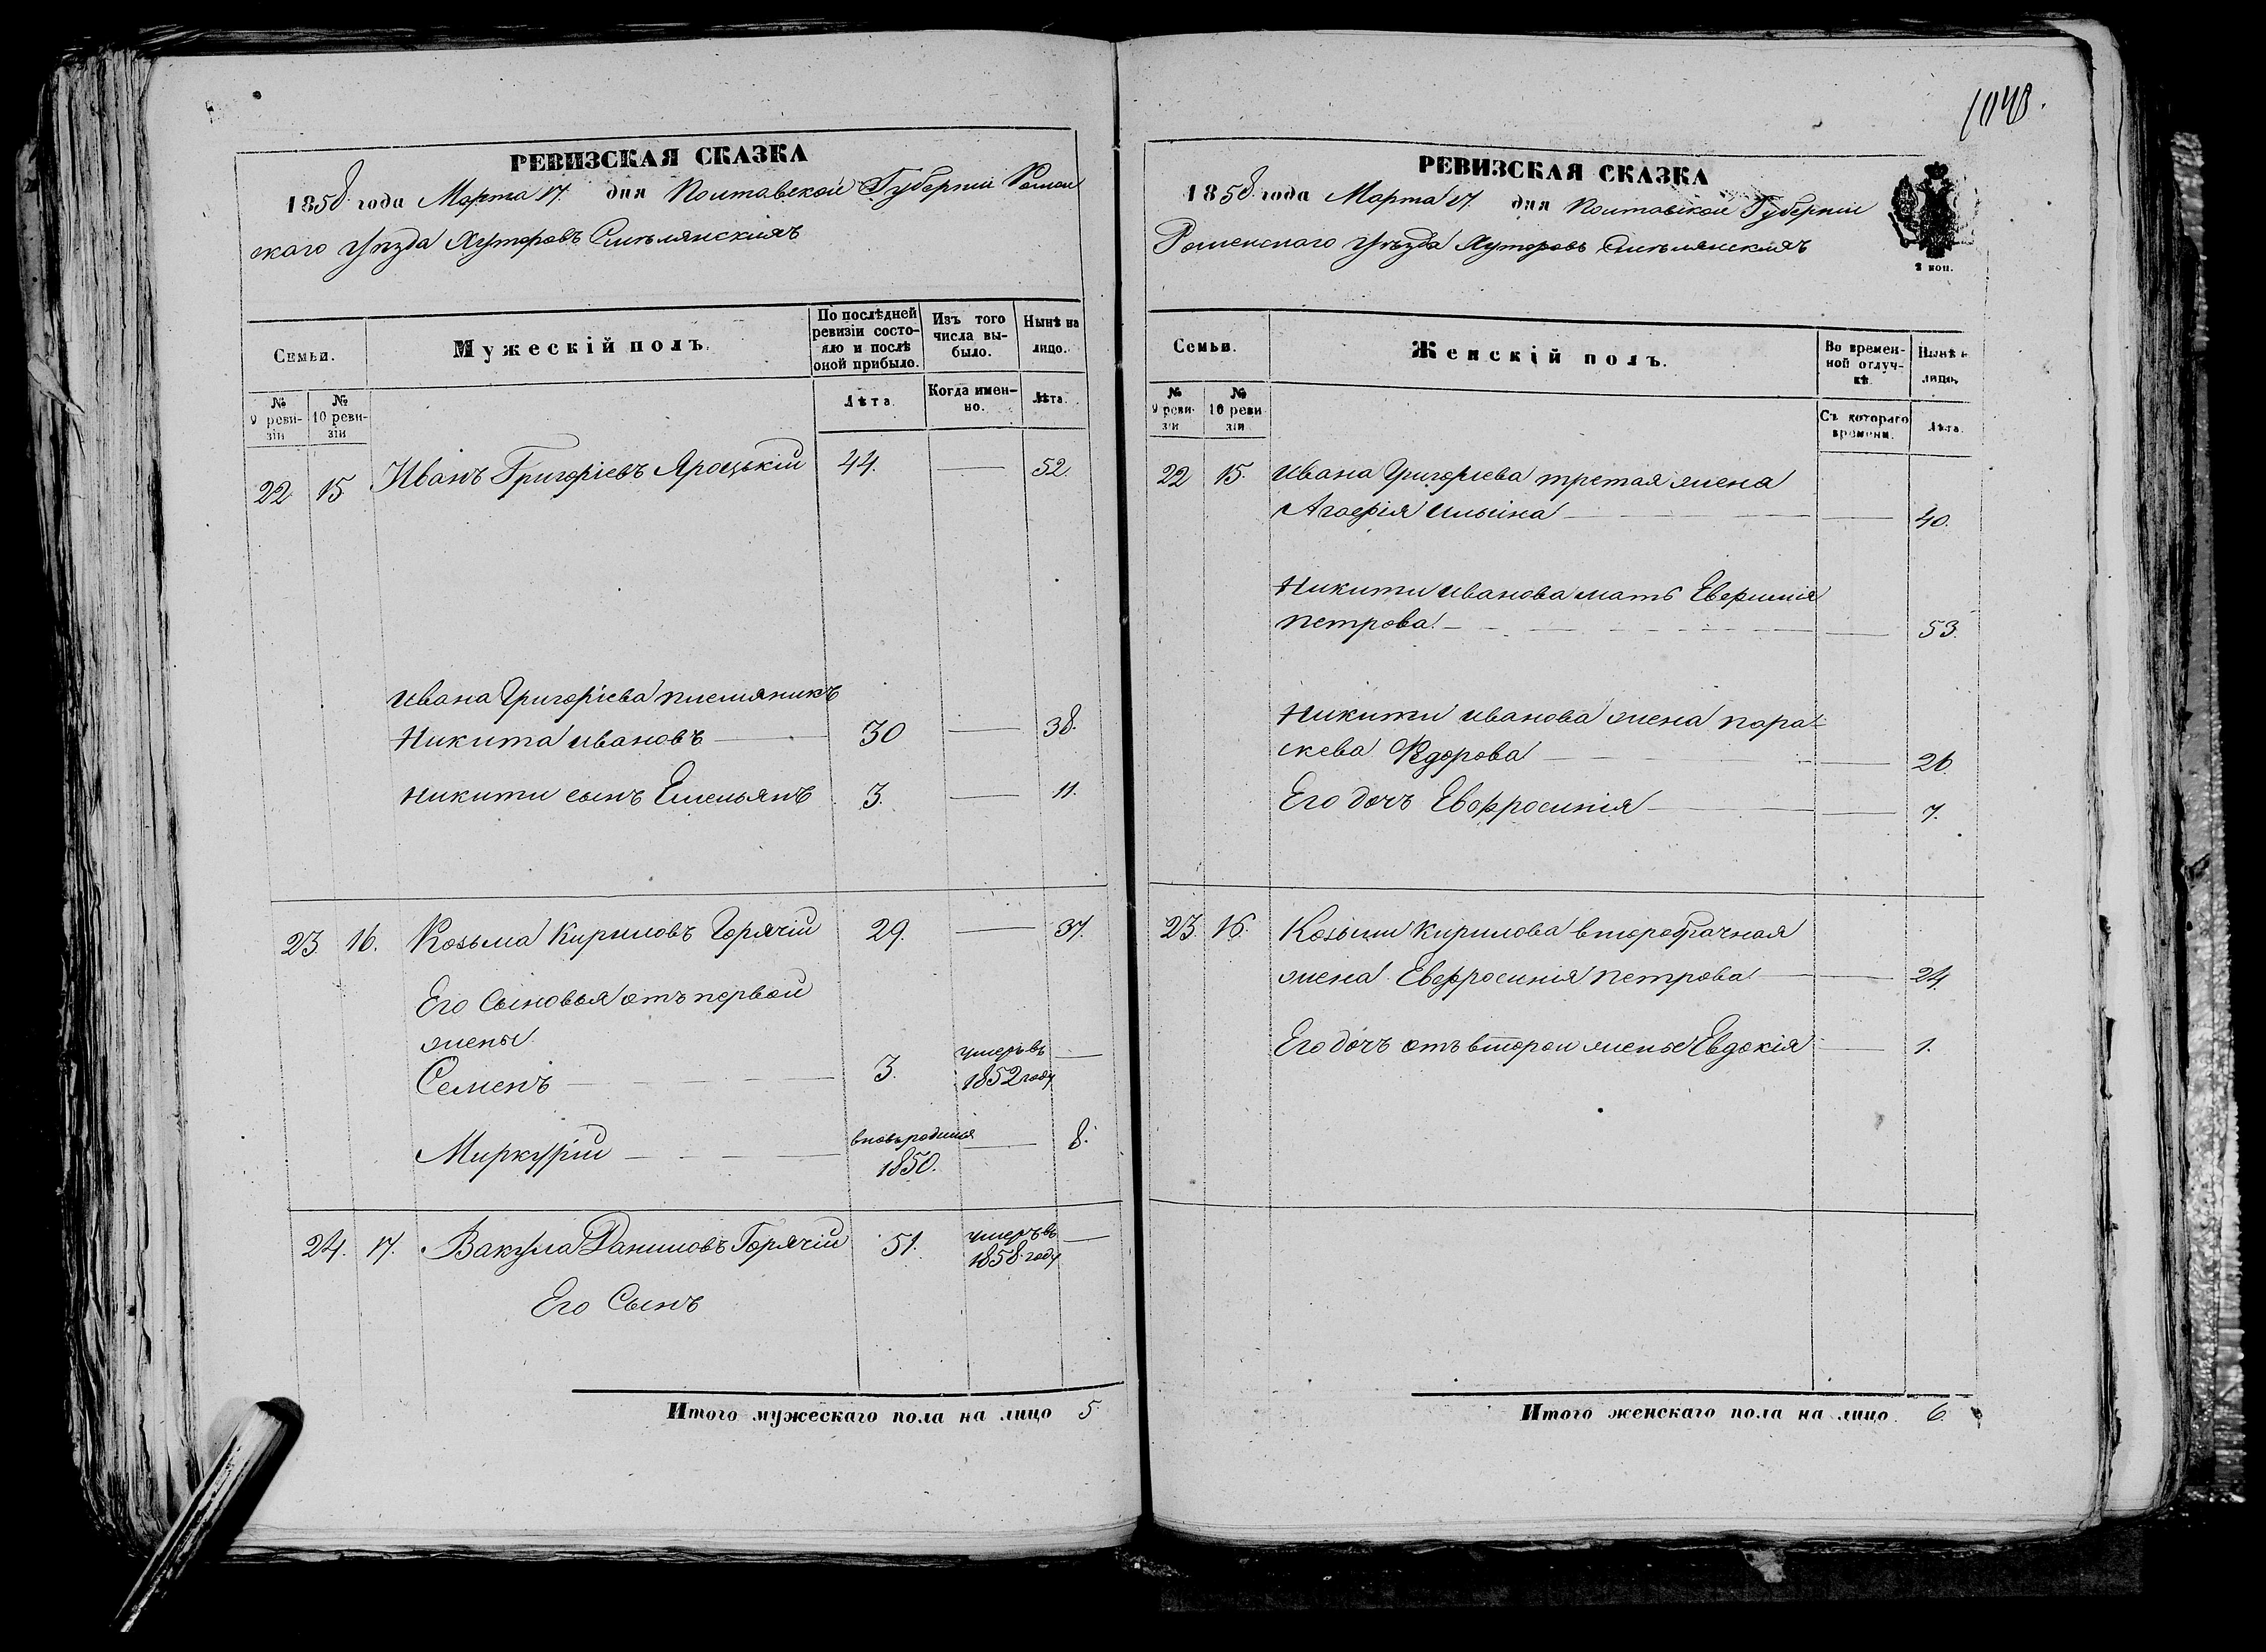 РЕВИЗСКАЯ СКАЗКА
1858 года Марта 17. дня Полтавской Губерніи Ромен
скаго Уѣзда Хуторовъ Смѣлянскихъ
Семьи.
№ 9 ревизіи
№ 10 ревизіи
Мужескій полъ.
По послѣдней
ревизіи состо-
яло и послѣ
оной прибыло.
Лѣта.
Изъ того
числа вы-
было.
Когда имен-
но.
Нынѣ на
лицо.
Лѣта.
22 15 Иванъ Григоріевъ Яроцькій 44. — 52.
Ивана Григоріева племяникъ
Никита Ивановъ — 30 — 38.
Никити сынъ Емельянъ 3. — 11.
23. 16. Козьма Кириловъ Горячій 29. — 37.
Его Сыновья отъ первой
жены
Семенъ — 3. умеръ въ 1852 году —
Миркурій — вновьродился 1850. — 8.
24. 17. Вакула Даниловъ Горячій 51. умеръ въ 1858 году —
Его Сынъ
Итого мужескаго пола на лицо 5
РЕВИЗСКАЯ СКАЗКА
1858 года Марта 17. дня Полтавской Губерніи
Роменскаго Уѣзда Хуторовъ Смѣлянскихъ
2 коп.
Семьи.
№ 9 ревизіи
№ 10 ревизіи
Женскій полъ.
Во времен-
ной отлуч-
кѣ.
Съ котораго
времени.
Нынѣ н
лицо.
Лѣта.
22 15. Ивана Григоріева третая жена
Агафія Ильина — — 40.
Никити Иванова мать
Петрова — — 53.
Никити Иванова жена Пара-
скева Федорова — — 26.
Его дочъ Евфросинія — — 7.
23. 16. Козьми Кирилова второбрачная
жена Евфросинія Петрова — — 24.
Его дочъ отъ второй жены Евдокія — 1.
Итого женскаго пола на лицо. 6.